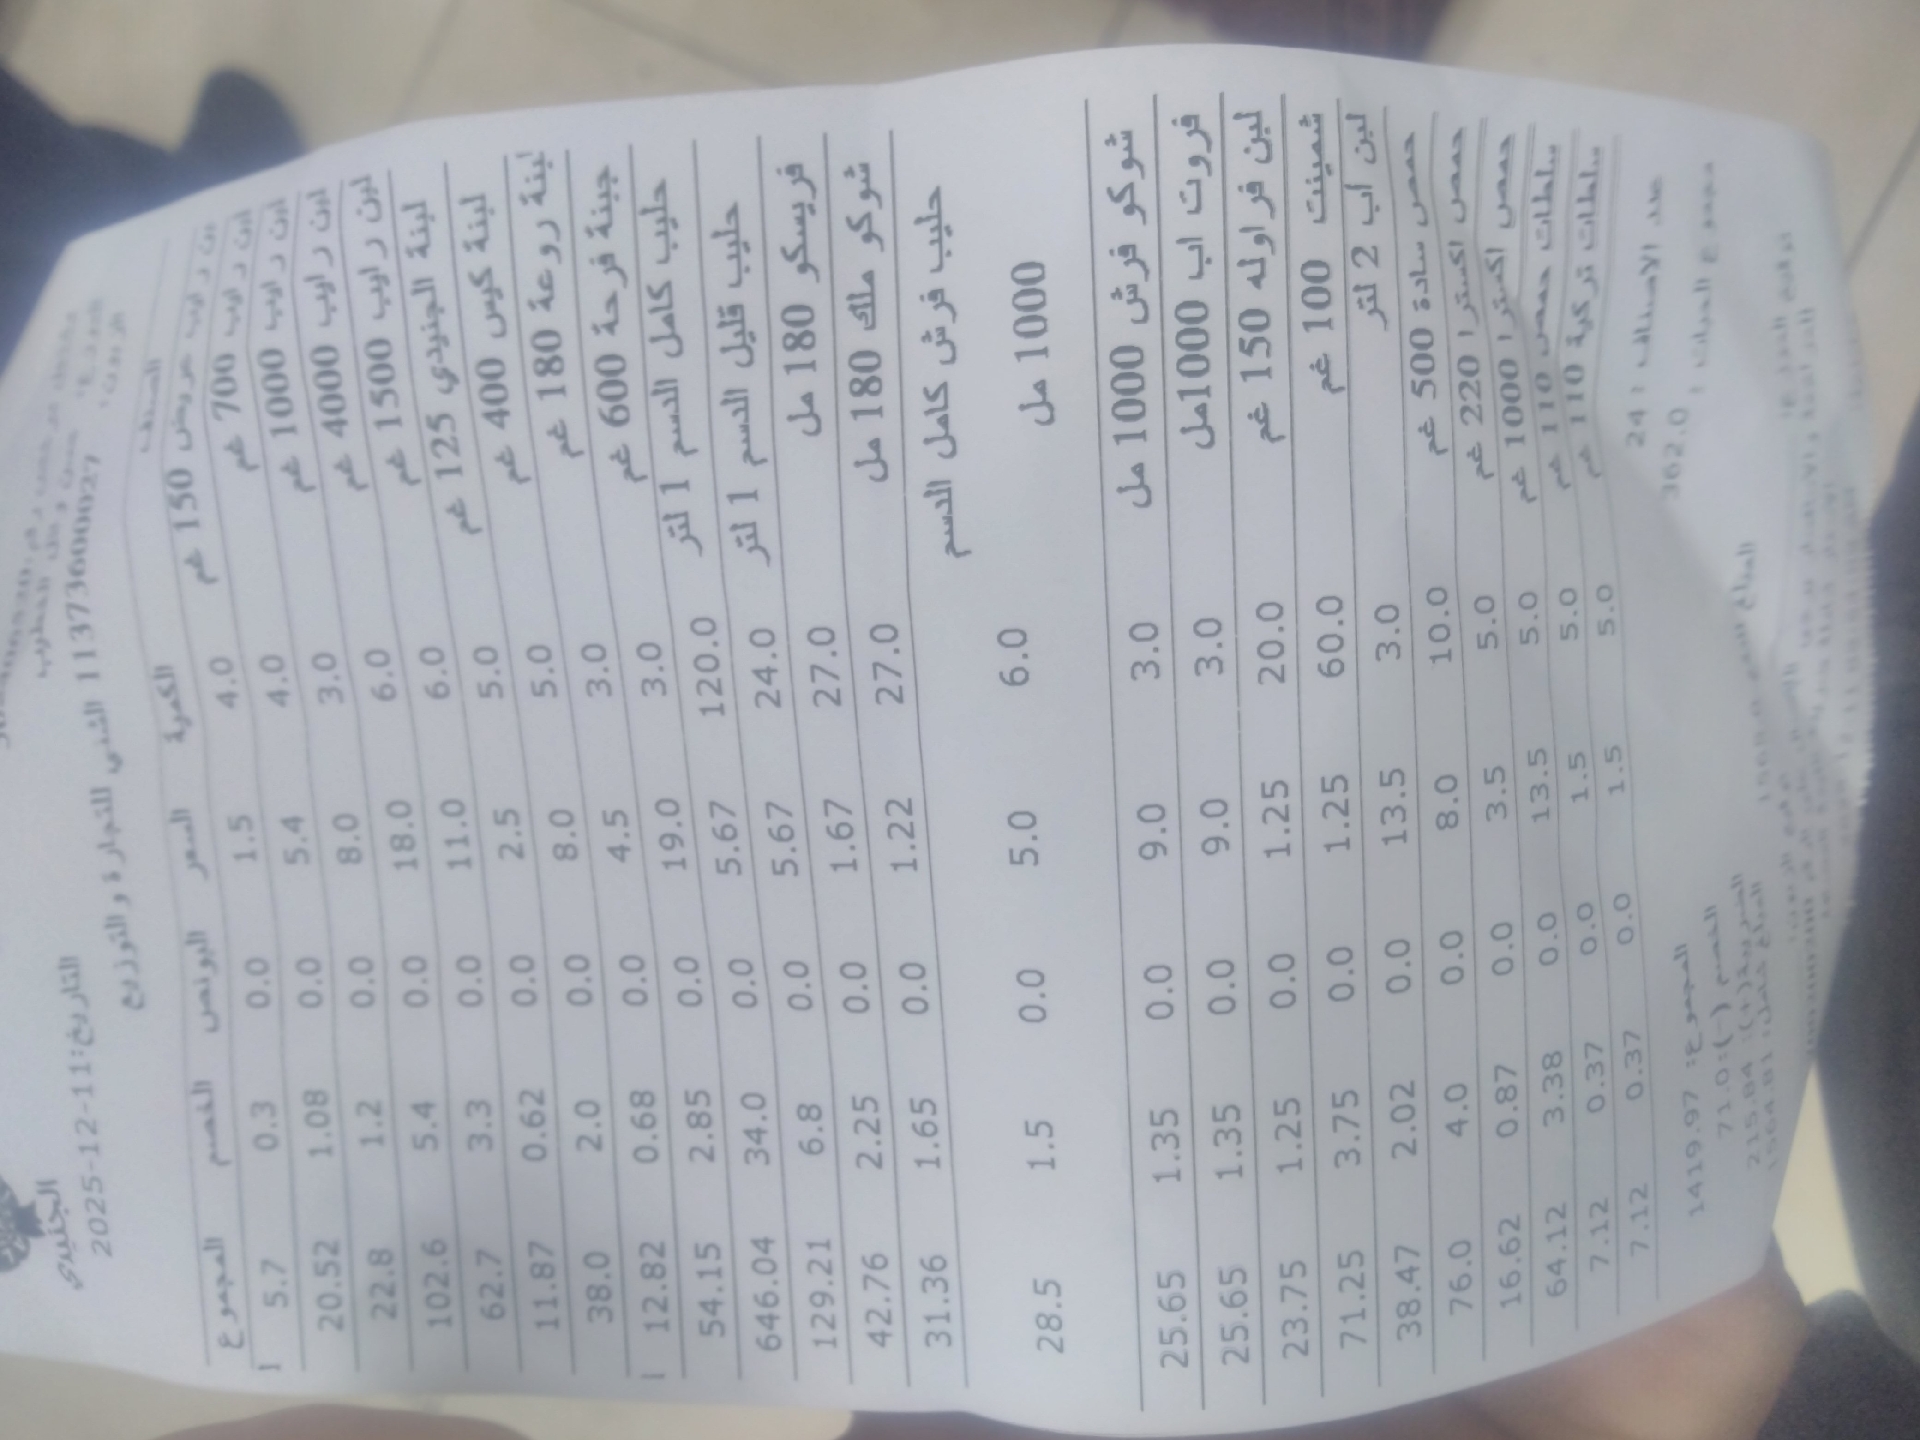 الجنيدي
التاريخ:11-12-2025
1137360002 الشني للتجارة و التوزيع
الصنف الكمية السعر البونص الخصم المجموع
لبن رايب عروض 150 غم 4.0 1.5 0.0 0.3 5.7
لبن رايب 700 غم 4.0 5.4 0.0 1.08 20.52
لبن رايب 1000 غم 3.0 8.0 0.0 1.2 22.8
لبن رايب 4000 غم 6.0 18.0 0.0 5.4 102.6
لبن رايب 1500 غم 6.0 11.0 0.0 3.3 62.7
لبنة الجنيدي 125 غم 5.0 2.5 0.0 0.62 11.87
لبنة كيس 400 غم 5.0 8.0 0.0 2.0 38.0
لبنة روعة 180 غم 3.0 4.5 0.0 0.68 12.82
جبنة فرحة 600 غم 3.0 19.0 0.0 2.85 54.15
حليب كامل الدسم 1 لتر 120.0 5.67 0.0 34.0 646.04
حليب قليل الدسم 1 لتر 24.0 5.67 0.0 6.8 129.21
فريسكو 180 مل 27.0 1.67 0.0 2.25 42.76
شوكو ملك 180 مل 27.0 1.22 0.0 1.65 31.36
حليب فرش كامل الدسم
1000 مل 6.0 5.0 0.0 1.5 28.5
شوكو فرش 1000 مل 3.0 9.0 0.0 1.35 25.65
فروت اب 1000مل 3.0 9.0 0.0 1.35 25.65
لبن فراوله 150 غم 20.0 1.25 0.0 1.25 23.75
شمينت 100 غم 60.0 1.25 0.0 3.75 71.25
لبن اب 2 لتر 3.0 13.5 0.0 2.02 38.47
حمص سادة 500 غم 10.0 8.0 0.0 4.0 76.0
حمص اكسترا 220 غم 5.0 3.5 0.0 0.87 16.62
حمص اكسترا 1000 غم 5.0 13.5 0.0 3.38 64.12
سلطات حمص 110 غم 5.0 1.5 0.0 0.37 7.12
سلطات تركية 110 غم 5.0 1.5 0.0 0.37 7.12
عدد الاصناف : 24 المجموع: 1419.97
مجموع الحبات : 362.0 الخصم (-):71.0
الضريبة(+): 215.84